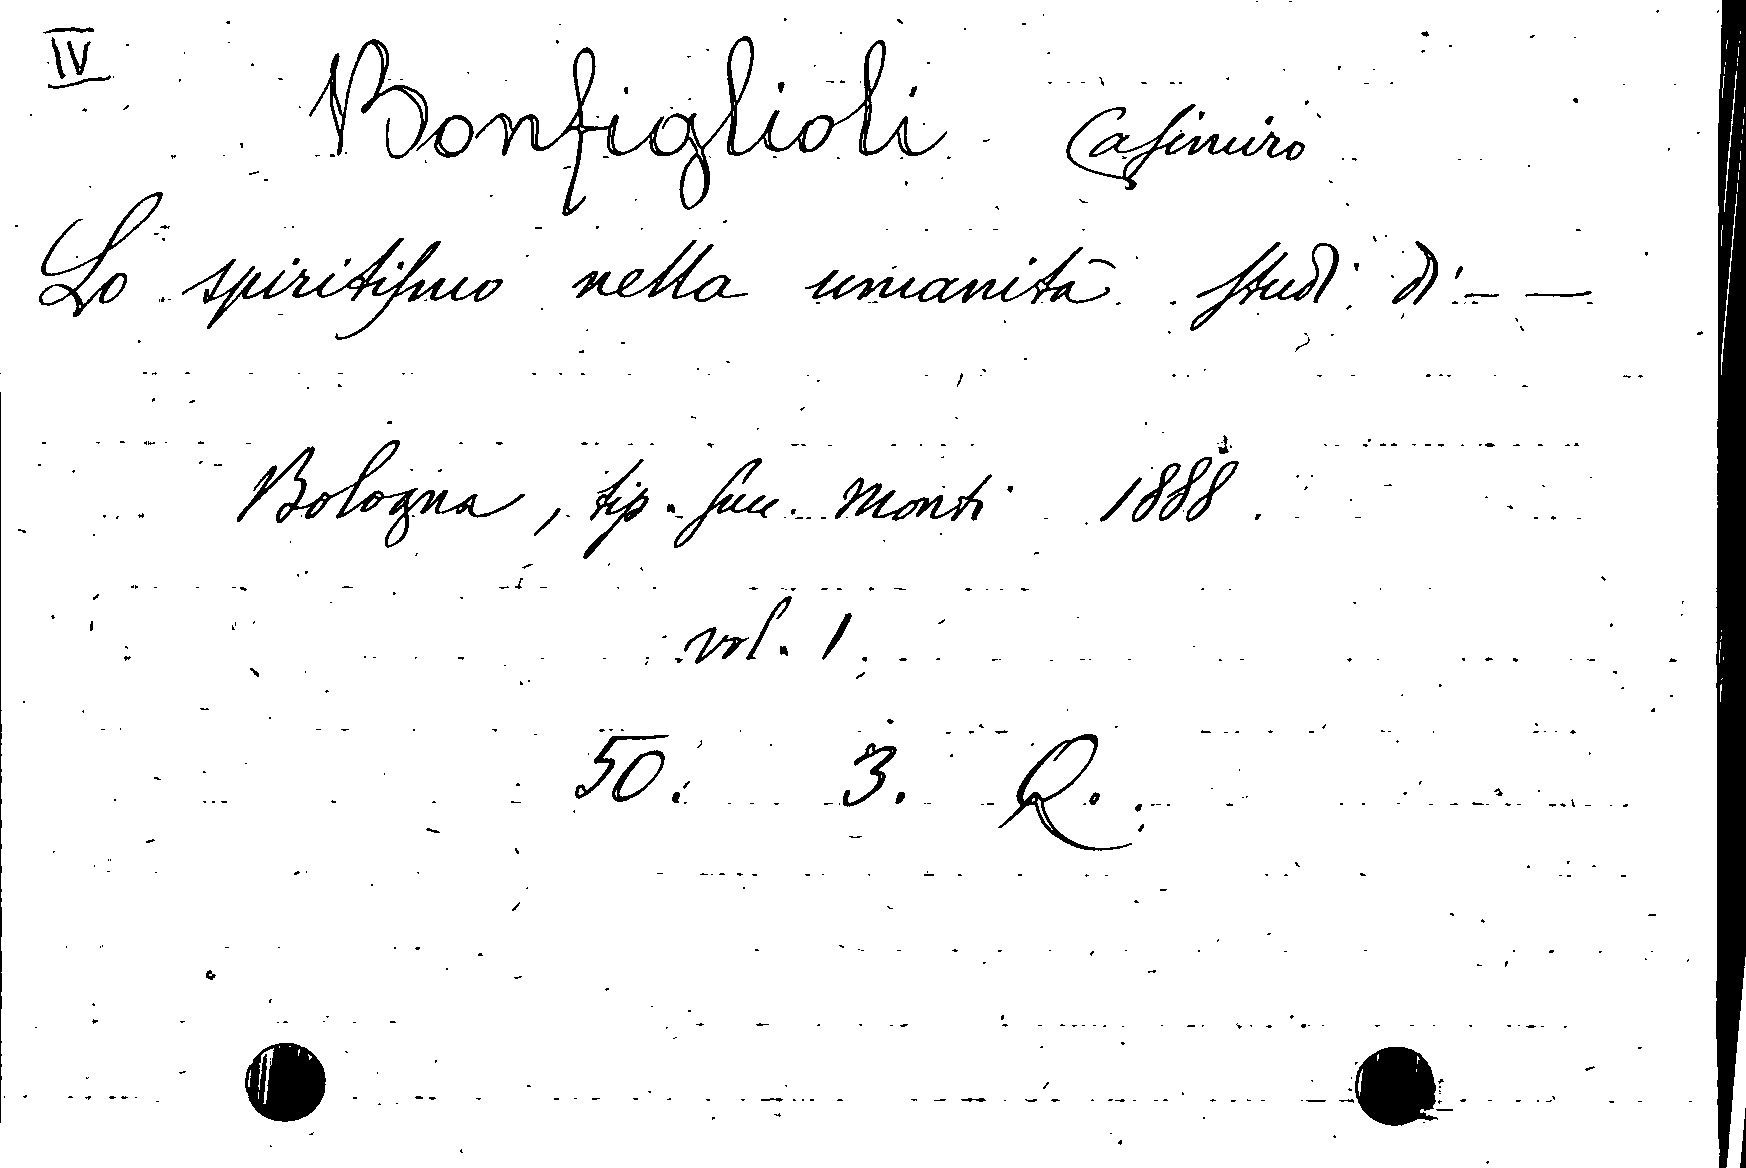 IV
Bonfiglioli Casimiro
Lo spiritismo nella umanità studi di — —
Bologna, tip. succ. Monti 1888.
vol. 1
50. 3. Q.